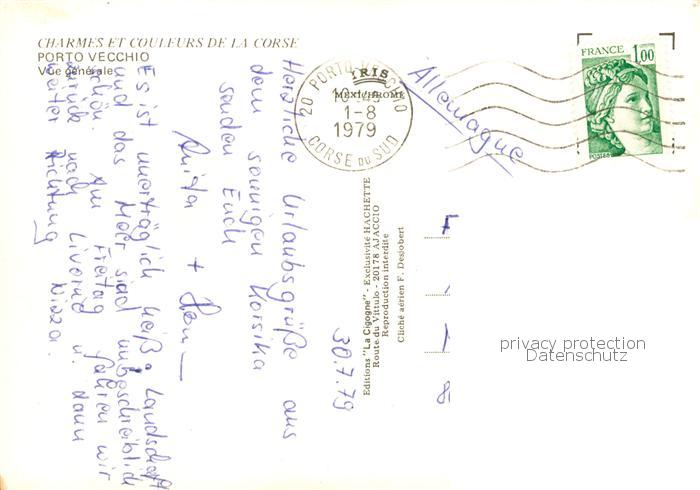 CHARMES ET COULEURS DE LA CORSE
PORTO VECCHIO
Vue générale
IRIS
MEXICHROME
20 PORTO-VECCHIO
1-8
1979
CORSE DU SUD
FRANCE
1,00
POSTES
Allemagne
30.7.79
Herzliche Urlaubsgrüße aus
dem sonnigen Korsika
senden Euch
Anita +
Es ist unerträglich heiß. Landschaft
und das Meer sind unbeschreiblich
schön. Am Freitag fahren wir
zurück nach Livorno u. dann
weiter Richtung Nizza.
Editions "La Cigogne" - Exclusivité HACHETTE
Route du Vittulo - 20178 AJACCIO
Reproduction interdite
Cliché aérien F. Desjobert
privacy protection
Datenschutz